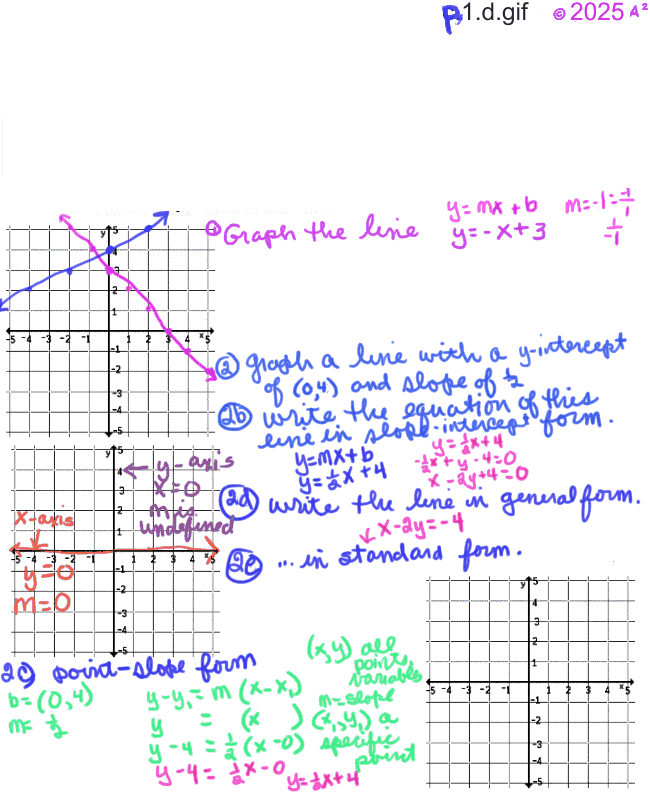 P1.d.gif © 2025 A²
① Graph the line
y = mx + b m = -1 = -1/1
y = -x + 3 1/-1
② Graph a line with a y-intercept
of (0,4) and slope of 1/2
②b write the equation of this
line in slope-intercept form.
y = mx + b
y = 1/2 x + 4
y = 1/2 x + 4
-1/2 x + y - 4 = 0
x - 2y + 4 = 0
②d write the line in general form.
x - 2y = -4
②e ... in standard form.
y
5
4
3
2
1
-5 -4 -3 -2 -1 1 2 3 4 x 5
-1
-2
-3
-4
-5
← y-axis
x = 0
m is
undefined
x-axis
y = 0
m = 0
y
5
4
3
2
1
-5 -4 -3 -2 -1 1 2 3 4 x 5
-1
-2
-3
-4
-5
2c) point-slope form
b = (0,4)
m = 1/2
y - y₁ = m (x - x₁)
y = (x )
y - 4 = 1/2 (x - 0)
y - 4 = 1/2 x - 0
y = 1/2 x + 4
(x,y) all
points,
variables
m = slope
(x₁, y₁) a
specific
point
y
5
4
3
2
1
-5 -4 -3 -2 -1 1 2 3 4 x 5
-1
-2
-3
-4
-5